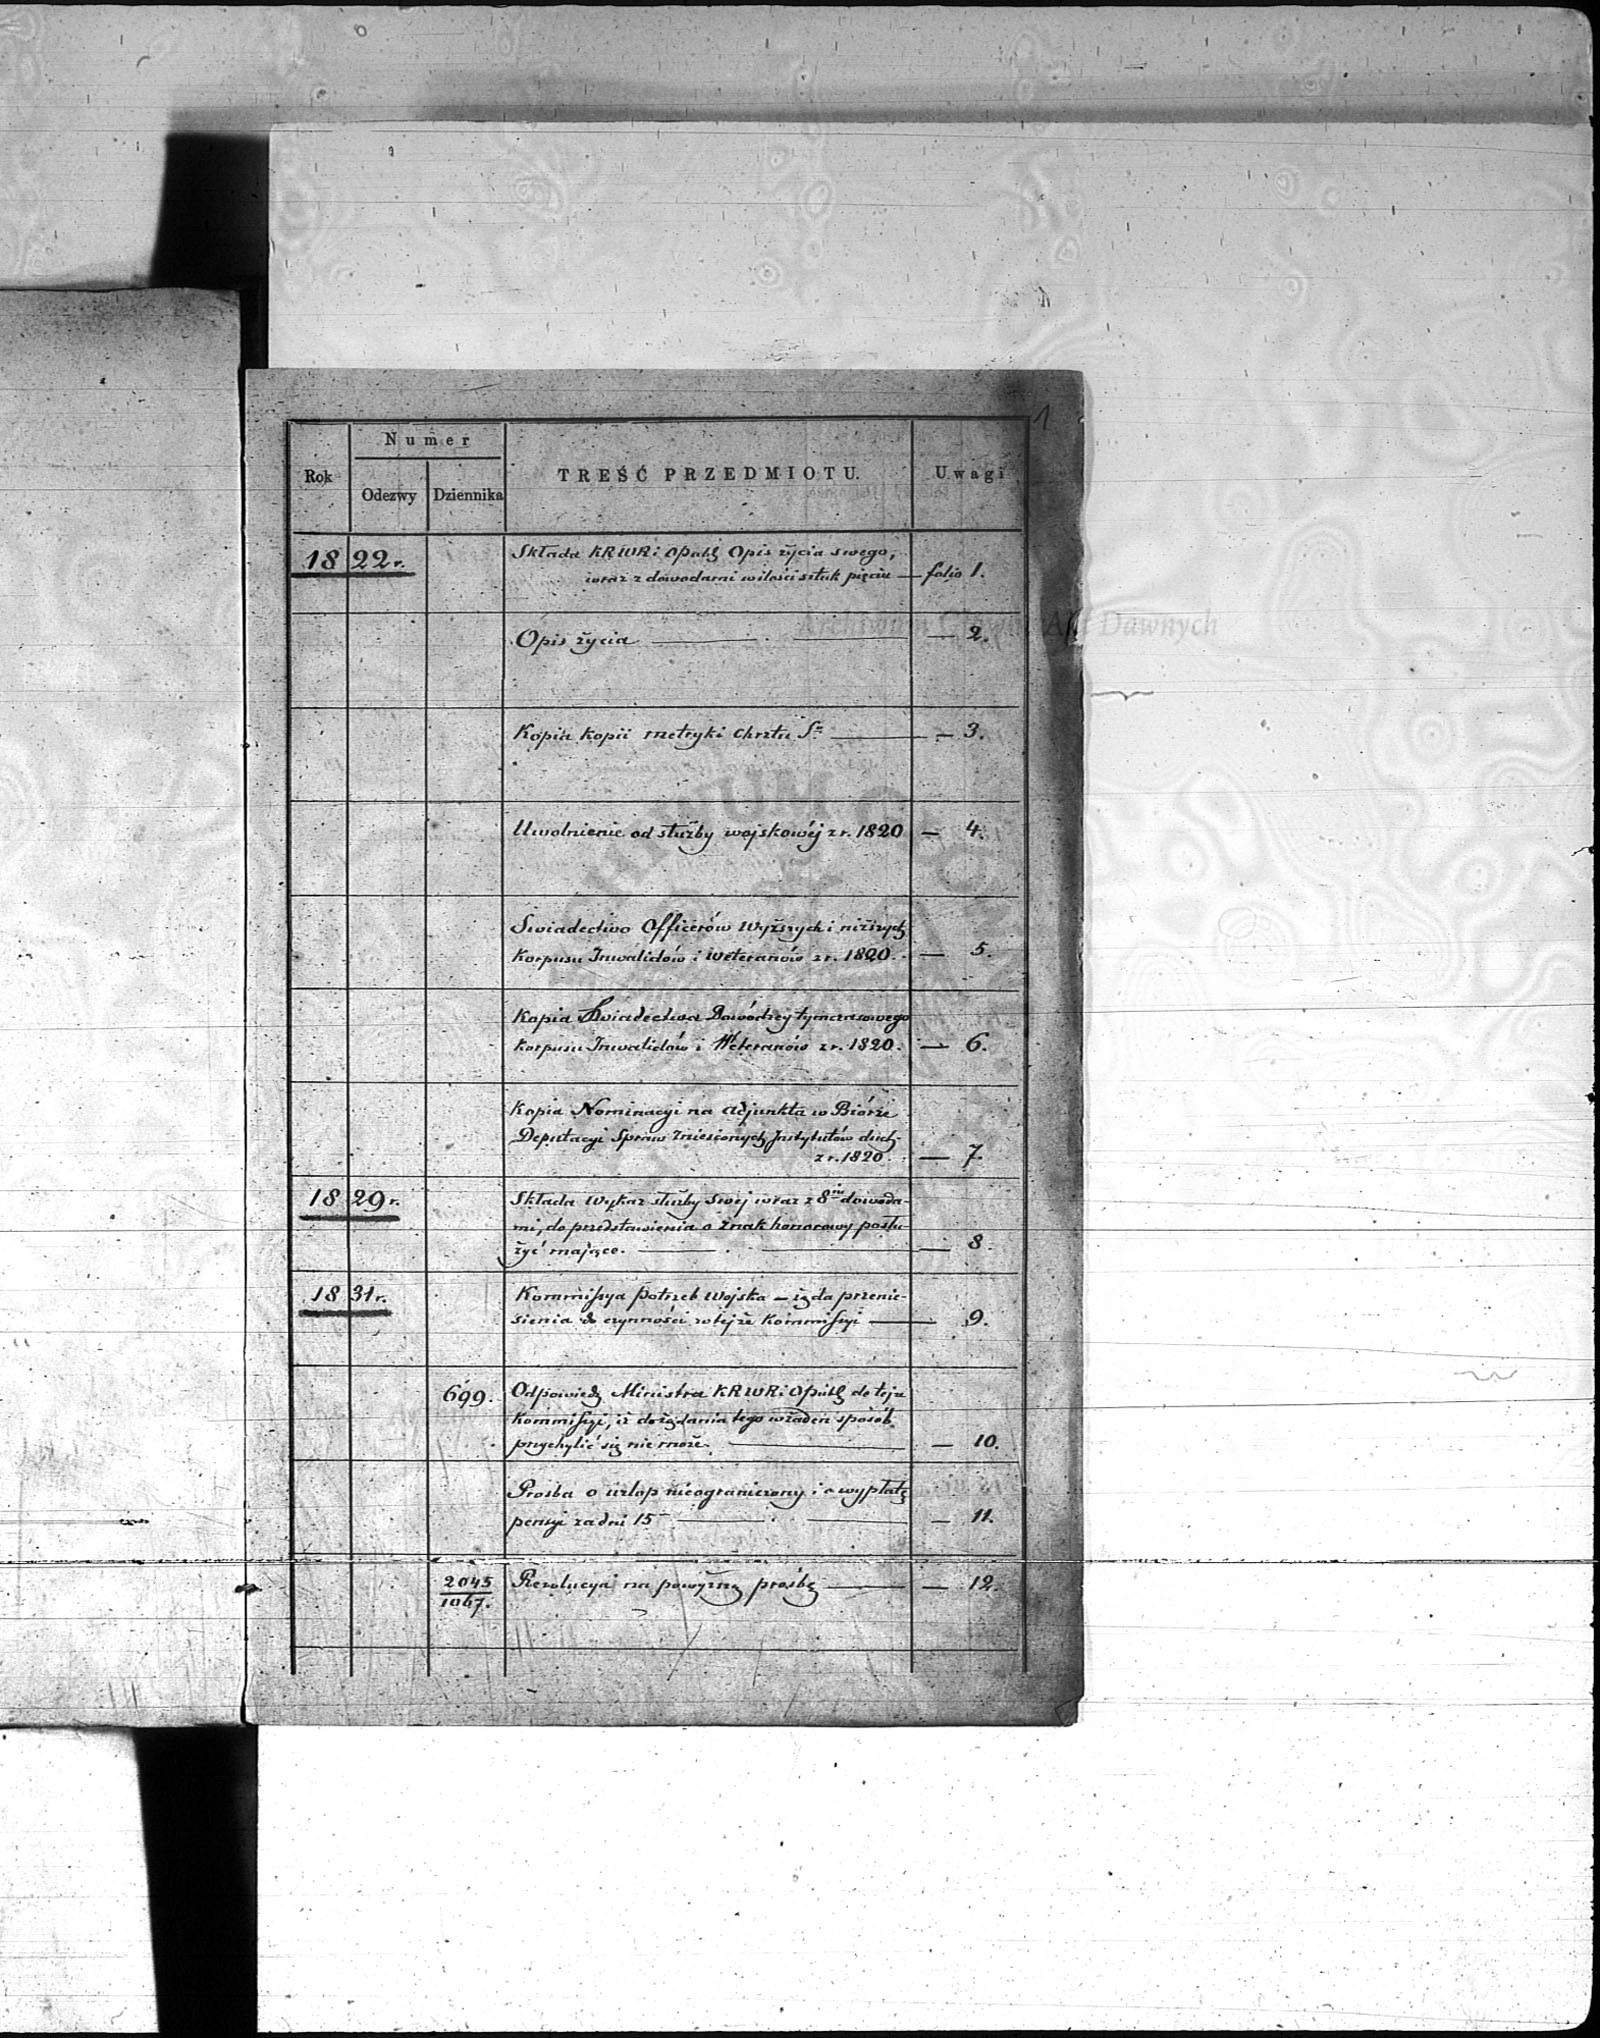 1
Numer
Rok
Odezwy
Dziennika
TREŚĆ PRZEDMIOTU.
Uwagi
1822 r.
Składa KRWRiOpubl Opis życia swego,
wraz z dowodami w ilości sztuk pięciu — folio 1.
Opis życia — 2.
Kopia kopii metryki Chrztu Sgo — 3.
Uwolnienie od służby wojskowéj z r. 1820 — 4.
Swiadectwo Officerów Wyższych i niższych
Korpusu Inwalidów i Weteranów z r. 1820. — 5.
Kopia Swiadectwa Dowódzcy tymczasowego
Korpusu Inwalidów i Weteranów z r. 1820. — 6.
Kopia Nominacyi na Adjunkta w Biórze
Deputacyi Spraw Zniesionych Instytutów duch.
z r. 1820. — 7.
1829 r.
Składa Wykaz służby Swej wraz z 8iu dowoda-
mi, do przedstawienia o Znak honorowy posłu-
żyć mające. — 8.
1831 r.
Kommissya Potrzeb Wojska — żąda przenie-
sienia do czynności w tejże Kommissyi — 9.
699.
Odpowiedź Ministra KRWRiOpubl do tejże
Kommissyi, iż do żądania tego w żaden sposób
przychylić się nie może. — 10.
Prosba o urlop nieograniczony i o wypłatę
pensyi za dni 15 — 11.
2045
1067.
Rezolucya na powyższą prośbę — 12.
Archiwum Główne Akt Dawnych